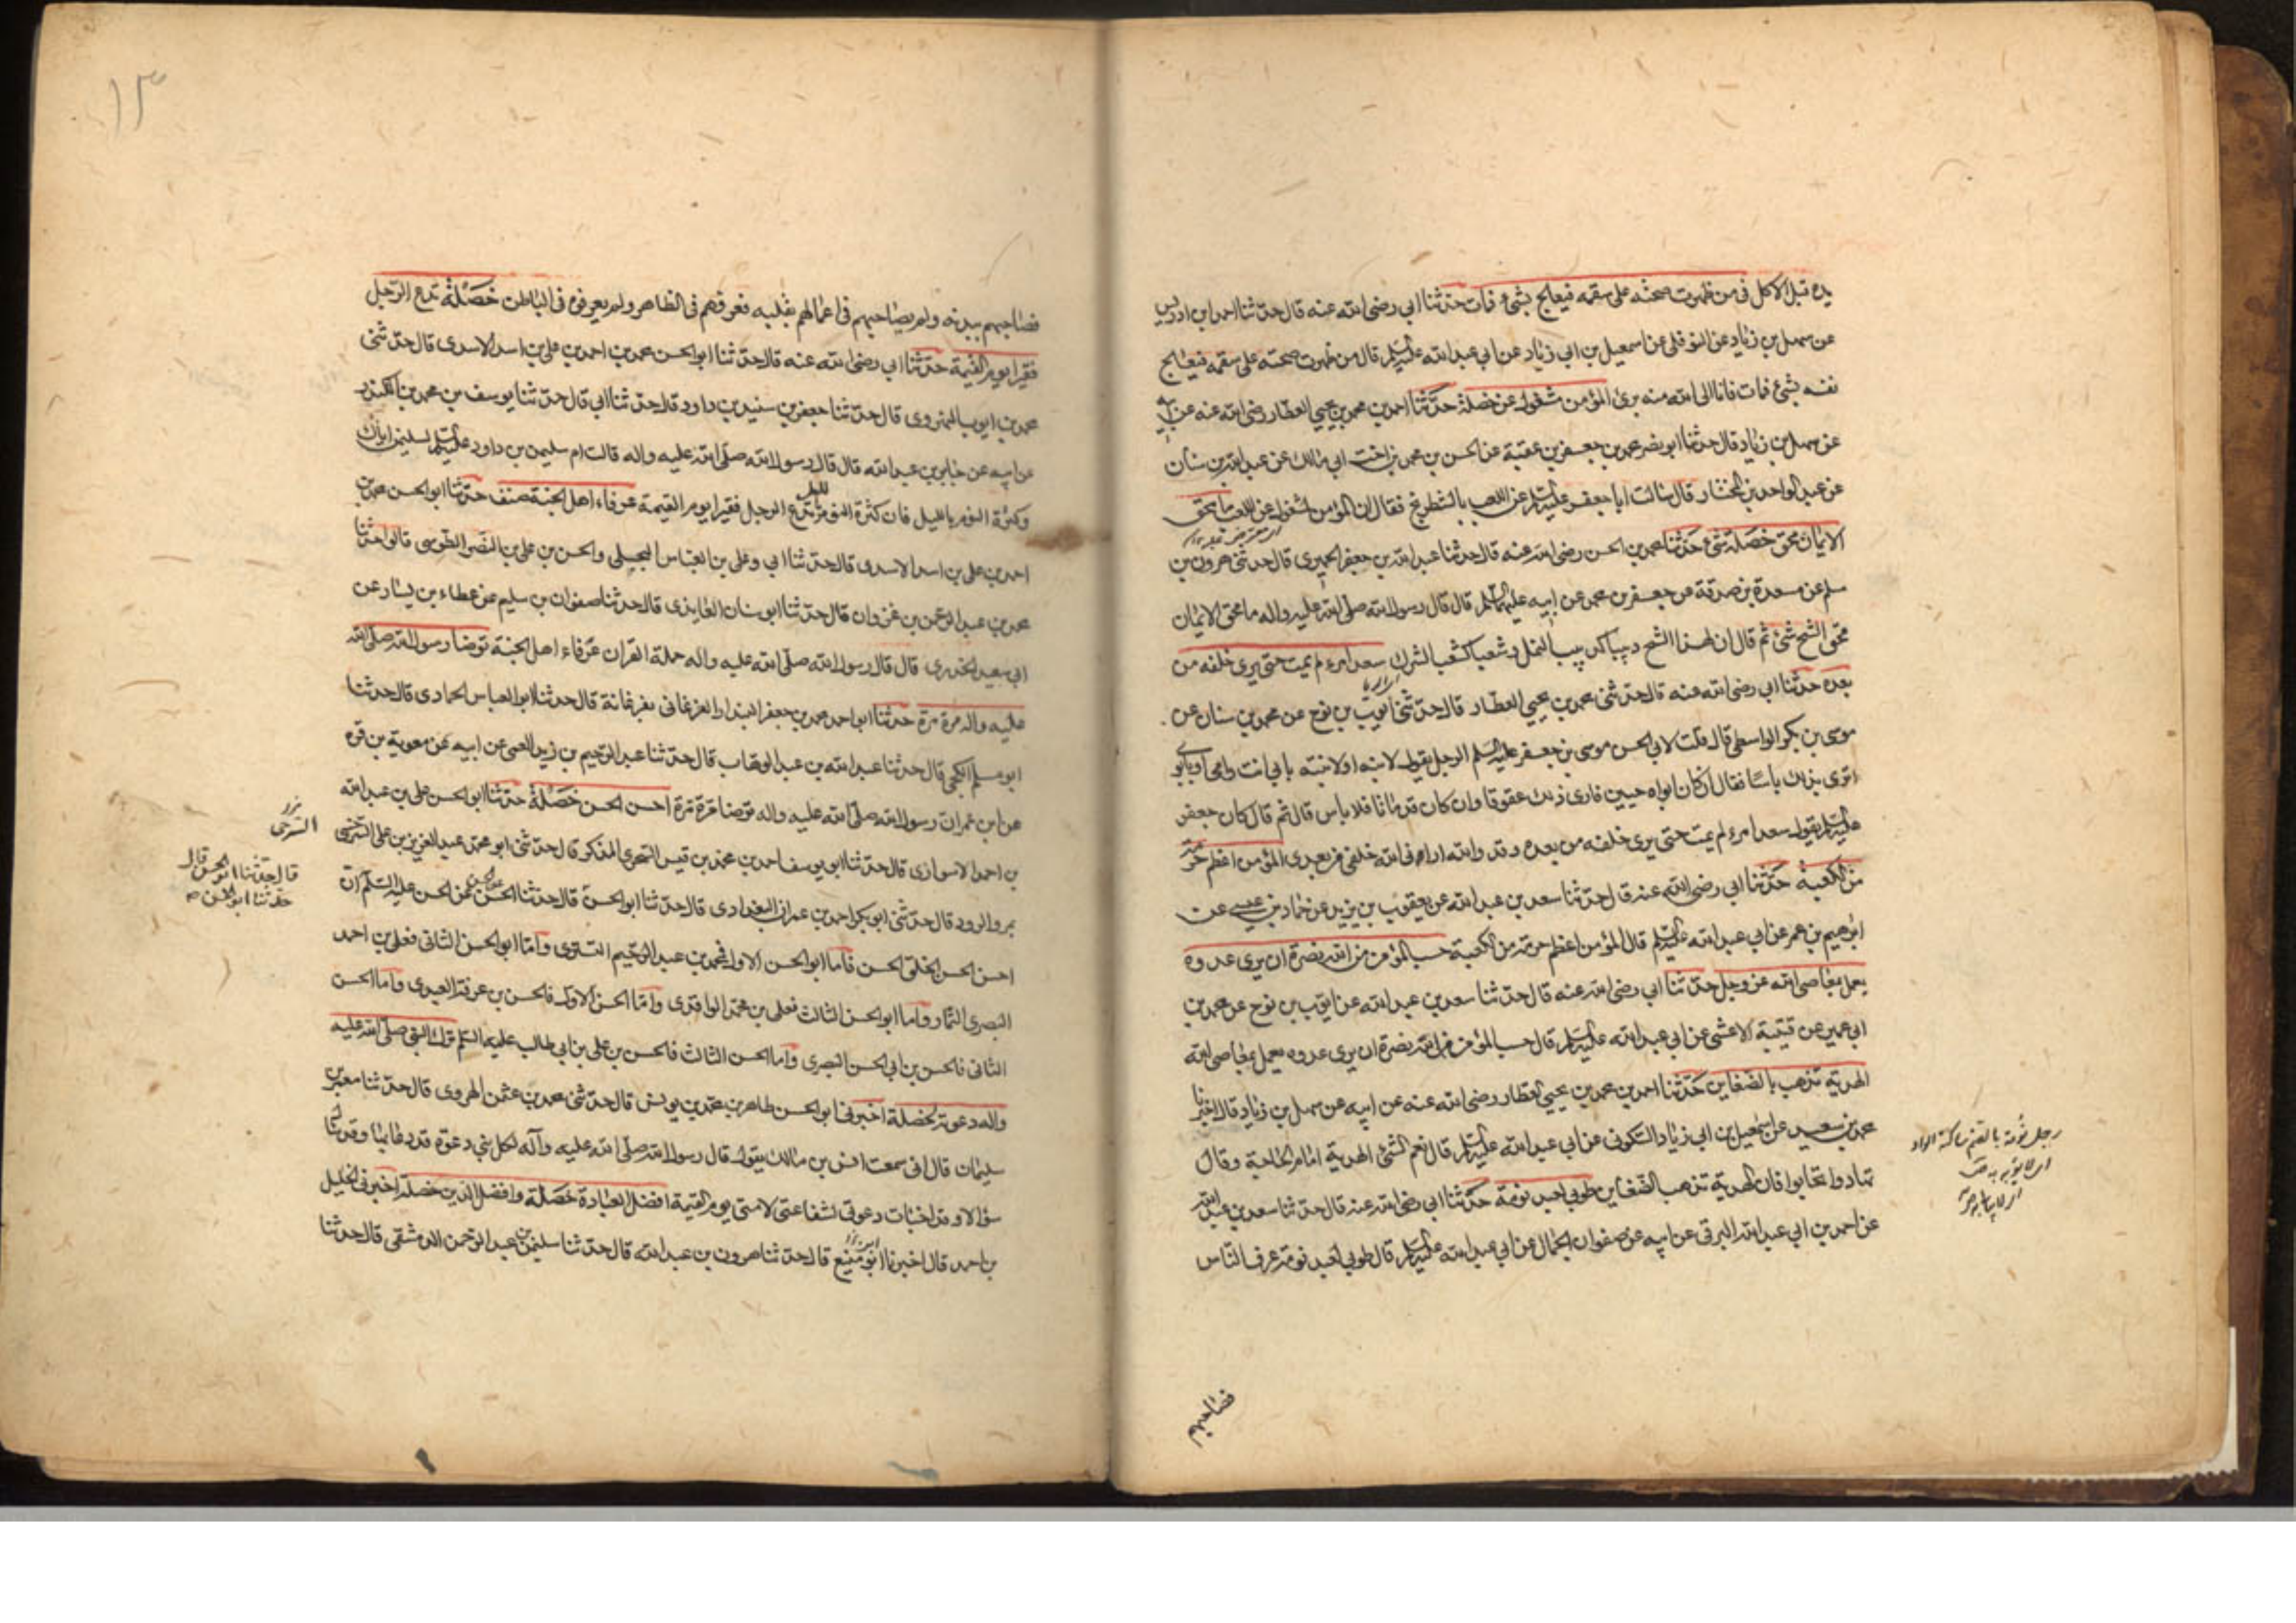 يده قبل الاكل فى من ظهرت صحته على سقمه فيعالج بشئ فمات حدثنا ابي رضى الله عنه قال حدثنا احمد ابن ادريس
عن سهل بن زياد عن النوفلى عن اسمعيل بن ابي زياد عن ابي عبد الله عليه السلم قال من ظهرت صحته على سقمه فيعالج
نفسه بشئ فمات فانا الى الله منه برئ المؤمن مشغول عن خصلة حدثنا احمد بن محمد بن يحيى العطار رضى الله عنه عن ابيه
عن سهل بن زياد قال حدثنا ابو نصر محمد بن جعفر بن عقبة عن الحسن بن محمد بن اخت ابي مالك عن عبد الله بن سنان
عن عبد الواحد بن المختار قال سالت ابا جعفر عليه السلم عن اللعب بالشطرنج فقال ان المؤمن لمشغول عن اللعب ما يمحق
الايمان محق خصلة شئ حدثنا محمد بن الحسن رضى الله عنه قال حدثنا عبد الله بن جعفر الحميرى قال حدثنى هرون بن
مسلم عن مسعدة بن صدقة عن جعفر بن محمد عن ابيه عليهما السلم قال قال رسول الله صلى الله عليه واله ما محق الايمان
محق الشح شئ ثم قال ان لهذا الشح دبيبا كدبيب النمل وشعبا كشعب الشرك سعد امرء لم يمت حتى يرى خلفه من
بعده حدثنا ابي رضى الله عنه قال حدثنى محمد بن يحيى العطار قال حدثنى ايوب بن نوح عن محمد بن سنان عن
موسى بن بكر الواسطى قال قلت لابي الحسن موسى بن جعفر عليه السلم الرجل يقول لابنه او لابنته بابي انت وامى او بابوى
اترى بذلك باسا فقال ان كان ابواه حيين فارى ذلك عقوقا وان كان قد ماتا فلا باس قال ثم قال كان جعفر
عليه السلم يقول سعد امرء لم يمت حتى يرى خلفه من بعده وقد والله ارانى الله خلفى من بعدى المؤمن اعظم حرمة
من الكعبة حدثنا ابي رضى الله عنه قال حدثنا سعد بن عبد الله عن يعقوب بن يزيد عن حماد بن عيسى عن
ابراهيم بن عمر عن ابي عبد الله عليه السلم قال المؤمن اعظم حرمة من الكعبة حسب المؤمن من الله نصرة ان يرى عدوه
يعمل بمعاصى الله عز وجل حدثنا ابي رضى الله عنه قال حدثنا سعد بن عبد الله عن ايوب بن نوح عن محمد بن
ابي عمير عن قتيبة الاعشى عن ابي عبد الله عليه السلم قال حسب المؤمن من الله نصرة ان يرى عدوه يعمل بمعاصى الله
الهدية تذهب بالضغاين حدثنا احمد بن محمد بن يحيى العطار رضى الله عنه عن ابيه عن سهل بن زياد قال اخبرنا
محمد بن سعيد عن اسمعيل بن ابي زياد السكونى عن ابي عبد الله عليه السلم قال نعم الشئ الهدية امام الحاجة وقال
تهادوا تحابوا فان الهدية تذهب الضغاين طوبى لعبد نومة حدثنا ابي رضى الله عنه قال حدثنا سعد بن عبد الله
عن احمد بن ابي عبد الله البرقى عن ابيه عن صفوان الجمال عن ابي عبد الله عليه السلم قال طوبى لعبد نومة عرف الناس
رجل نومة بالضم ساكنة الواو
اى لا يؤبه به
فصاحبهم
١٣
فصاحبهم ببدنه ولم يصاحبهم فى اعمالهم بقلبه فعرفهم فى الظاهر ولم يعرفوه فى الباطن خصلة تدع الرجل
فقيرا يوم القيمة حدثنا ابي رضى الله عنه قال حدثنا ابو الحسن محمد بن احمد بن على بن اسد الاسدى قال حدثنى
محمد بن ايوب قال حدثنا جعفر بن سنيد بن داود قال حدثنا ابي قال حدثنا يوسف بن محمد بن المنكدر
عن ابيه عن جابر بن عبد الله قال قال رسول الله صلى الله عليه واله قالت ام سليمن بن داود عليه السلم لسليمن اياك
وكثرة النوم بالليل فان كثرة النوم بالليل تدع الرجل فقيرا يوم القيمة عرفاء اهل الجنة صنف حدثنا ابو الحسن محمد بن
احمد بن على بن اسد الاسدى قال حدثنا ابي وعلى بن العباس البجلى والحسن بن على بن النصر الطوسى قالوا حدثنا
محمد بن عبد الرحمن بن غزوان قال حدثنا ابو سنان العايذى قال حدثنا صفوان بن سليم عن عطاء بن يسار عن
ابي سعيد الخدرى قال قال رسول الله صلى الله عليه واله حملة القران عرفاء اهل الجنة توضا رسول الله صلى الله
عليه واله مرة مرة حدثنا ابو احمد محمد بن جعفر البندار الفرغانى بفرغانة قال حدثنا ابو العباس الحمادى قال حدثنا
ابو مسلم الكجى قال حدثنا عبد الله بن عبد الوهاب قال حدثنا عبد الرحيم بن زيد العمى عن ابيه عن معوية بن قره
عن ابن عمران رسول الله صلى الله عليه واله توضا مرة مرة احسن الحسن خصلة حدثنا ابو الحسن على بن عبد الله
بن احمد الاسوارى قال حدثنا ابو يوسف احمد بن محمد بن قيس السجزى المذكر قال حدثنى ابو محمد عبد العزيز بن على السرخسى
بمرو الرود قال حدثنى ابو بكر احمد بن عمران البغدادى قال حدثنا ابو الحسن قال حدثنا الحسن عن الحسن عن الحسن عليه السلم ان
احسن الحسن الخلق الحسن فاما ابو الحسن الاول فمحمد بن عبد الرحيم التسترى واما ابو الحسن الثانى فعلى بن احمد
البصرى التمار واما ابو الحسن الثالث فعلى بن محمد الواقدى واما الحسن الاول فالحسن بن عرفة العبدى واما الحسن
الثانى فالحسن بن ابي الحسن البصرى واما الحسن الثالث فالحسن بن على بن ابي طالب عليه السلم ترك النبى صلى الله عليه
واله دعوته لخصلة اخبرنى ابو الحسن طاهر بن محمد بن يونس قال حدثنى محمد بن عثمن الهروى قال حدثنا معتمر بن
سليمان قال انى سمعت انس بن مالك يقول قال رسول الله صلى الله عليه وآله لكل نبى دعوة قد دعا بها وقد سال
سؤالا وقد اخبات دعوتى لشفاعتى لامتى يوم القيمة افضل العبادة خصلة وافضل الدين خصلة اخبرنى الخليل
بن احمد قال اخبرنا ابو منيع قال حدثنا هرون بن عبد الله قال حدثنا سليمن بن عبد الرحمن الدمشقى قال حدثنا
السرخى
قال حدثنا ابو الحسن قال
حدثنا ابو الحسن